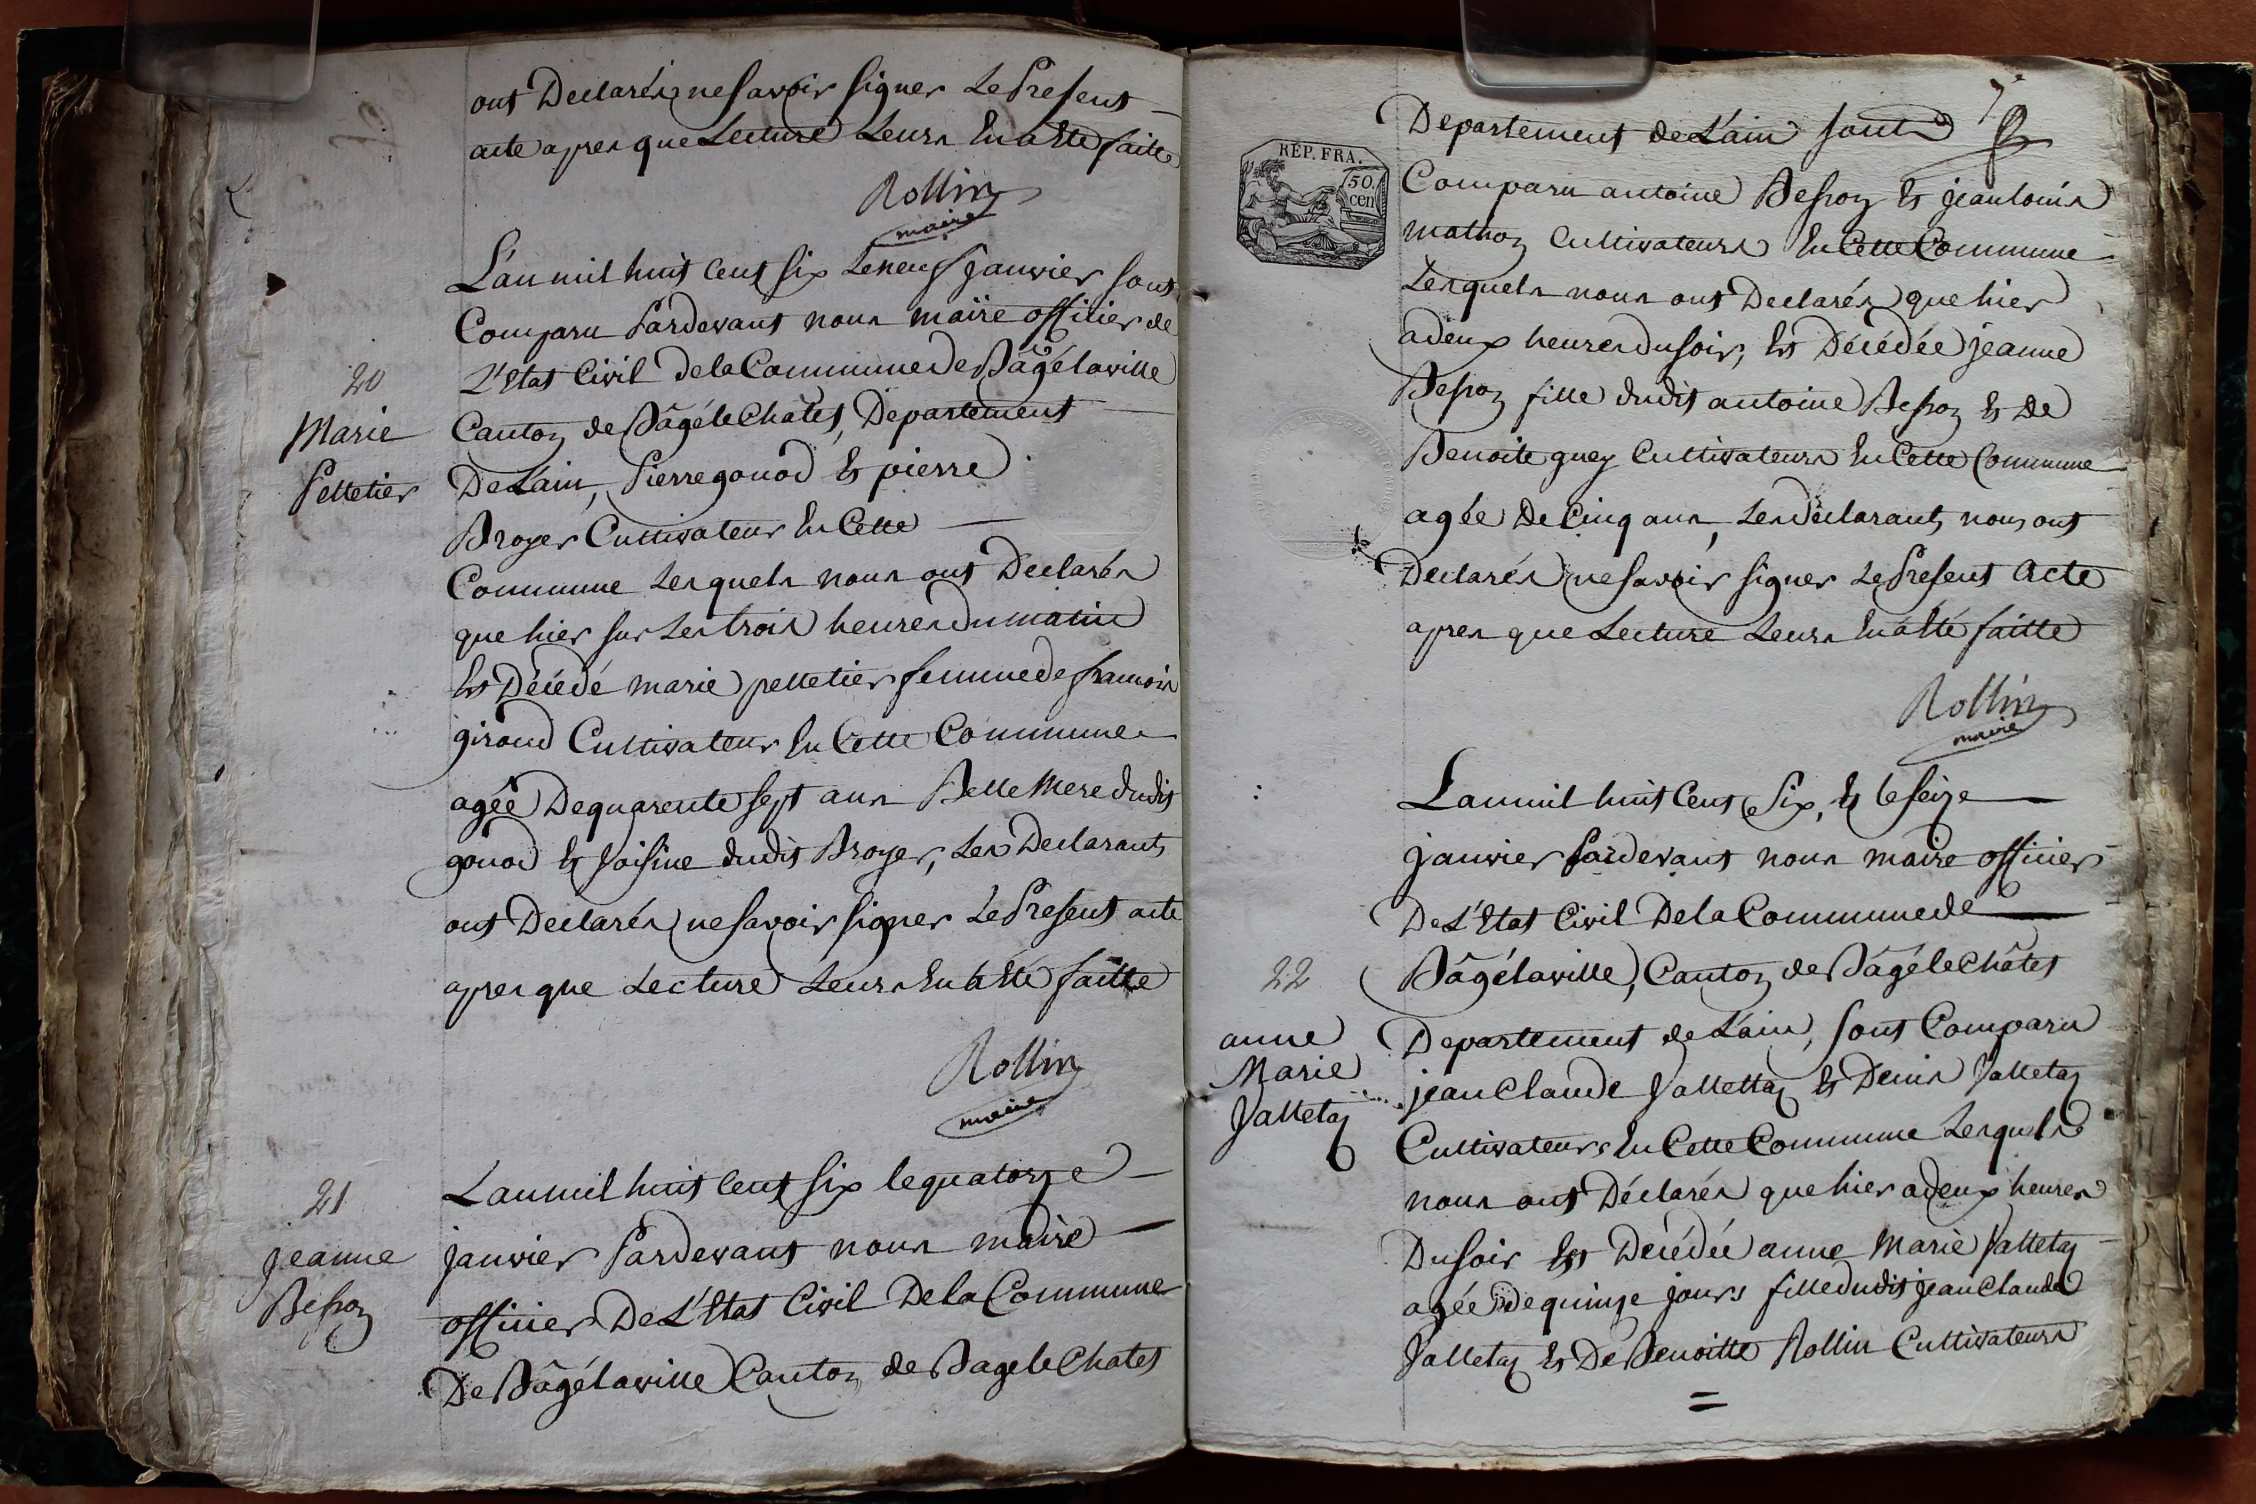 ont Declarés ne Savoir Signer Le Present
acte apres que Lecture Leurs En a Eté faitte
Rollin
maire
L'an mil huit Cent Six Le neuf Janvier Sont
Comparu Pardevant nous maire officier de
L'Etat Civil de la Commune de Bâgé la ville
20
Marie
Pelletier
Canton de Bâgé le Châtel, Departement
De L'ain, Pierre gonod Et pierre
Broyer Cultivateur En Cette
Commune Lesquels nous ont Declarés
que hier sur Les trois heures du matin
Est Décédé marie pelletier femme de francois
giroud Cultivateur En Cette Commune
agée De quarente Sept ans Belle Mere dudit
gonod Et Voisine dudit Broyer, Les Declarants
ont Declarés ne Savoir Signer Le Present acte
apres que Lecture Leurs En à Eté faitte
Rollin
maire
21
jeanne
Besson
L'an mil huit Cent Six le quatorze
janvier Pardevant nous maire
officier De L'Etat Civil De la Commune
De Bâgé la ville Canton de Bagé le Chatel
7e
Departement de L'ain Sont
RÉP. FRA.
50.
cen
Comparu antoine Besson Et jean louis
mathon Cultivateurs En Cette Commune
Lesquels nous ont Declarés que hier
a deux heures du Soir, Est Décédée jeanne
Besson fille dudit antoine Besson Et de
Benoite guey Cultivateurs En Cette Commune
agée De Cinq ans, Les déclarants nous ont
Declarés ne Savoir Signer Le Present Acte
apres que Lecture Leurs En a Eté faitte
Rollin
maire
L'an mil huit Cent Six, Et le Seize
janvier Pardevant nous maire officier
De L'Etat Civil De la Commune de
22
anne
Marie
Valleton
Bâgé la ville, Canton de Bâgé le Châtel
Departement de L'ain, Sont Comparu
jean Claude Valletton Et Denis Valleton
Cultivateurs En Cette Commune Lesquels
nous ont Déclarés que hier a deux heures
Du Soir Est Décédée anne Marie Valleton
agée De quinze jours fille dudit jean Claude
Valleton Et De Benoitte Rollin Cultivateurs
=